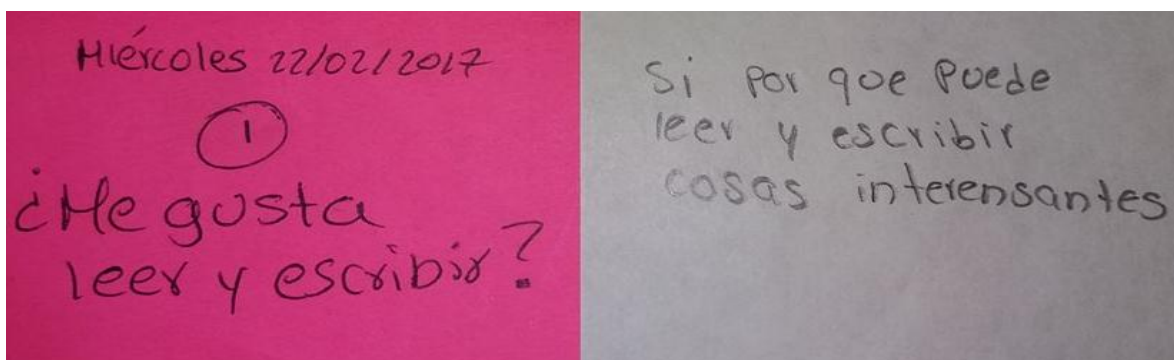 Miércoles 22/02/2017
1
¿Me gusta
leer y escribir?
Si por que puede
leer y escribir
cosas interensantes